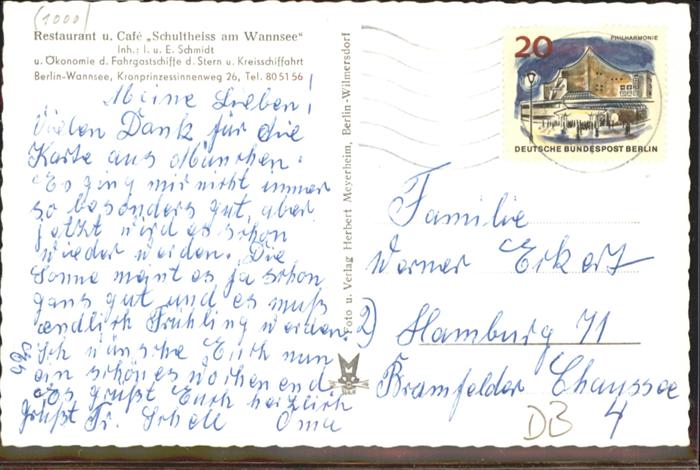 (1000)
Restaurant u. Café „Schultheiss am Wannsee“
Inh.: I. u. E. Schmidt
u. Ökonomie d. Fahrgastschiffe d. Stern u. Kreisschiffahrt
Berlin-Wannsee, Kronprinzessinnenweg 26, Tel. 80 51 56
Meine Lieben!
Vielen Dank für die
Karte aus München.
Es ging mir nicht immer
so besonders gut, aber
jetzt wird es schon
wieder werden. Die
Sonne meint es ja schon
ganz gut und es muß
endlich Frühling werden.
Ich wünsche Euch nun
ein schönes Wochenend
Es grüßt Euch herzlich
Oma
grüßt Fr. Schell
Foto u. Verlag Herbert Meyerheim, Berlin-Wilmersdorf
20
PHILHARMONIE
DEUTSCHE BUNDESPOST BERLIN
Familie
Werner Eckert
2) Hamburg 71
Bramfelder Chaussee
4
DB